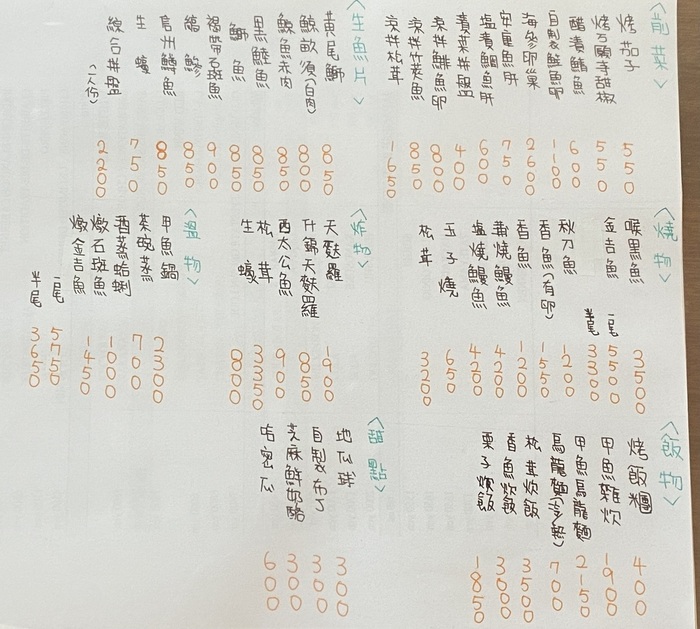 <前菜>
烤茄子 550
烤万願寺甜椒 550
醋漬鯖魚 600
自製鮭魚卵 1100
海參卵巢 2600
安康魚肝 750
塩漬鯛魚肝 600
漬菜拼盤 400
涼拌鯡魚卵 800
涼拌竹莢魚 850
涼拌松茸 1650
<生魚片>
黃尾鰤 850
鯨畝須(白肉) 800
鯨魚赤肉 850
黑鯥魚 850
鰤魚 850
褐帶石斑魚 900
縞鰺 850
信州鱒魚 850
生蠔 750
綜合拼盤(一人份) 2200
<燒物>
喉黑魚 3500
金吉魚 一尾 5500
半尾 3300
秋刀魚 1200
香魚(有卵) 1550
香魚 1200
蒲燒鰻魚 4200
塩燒鰻魚 4200
玉子燒 650
松茸 3200
<炸物>
天麩羅 1900
什錦天麩羅 850
西太公魚 900
松茸 3350
生蠔 800
<溫物>
甲魚鍋 2300
茶碗蒸 700
酒蒸蛤蜊 1000
燉石斑魚 1450
燉金吉魚
一尾 5750
半尾 3650
<飯物>
烤飯糰 400
甲魚雜炊 1900
甲魚烏龍麵 2150
烏龍麵(冷/熱) 700
松茸炊飯 3500
香魚炊飯 3000
栗子炊飯 1850
<甜點>
地瓜球 300
自製布丁 300
芝麻鮮奶酪 300
哈密瓜 600